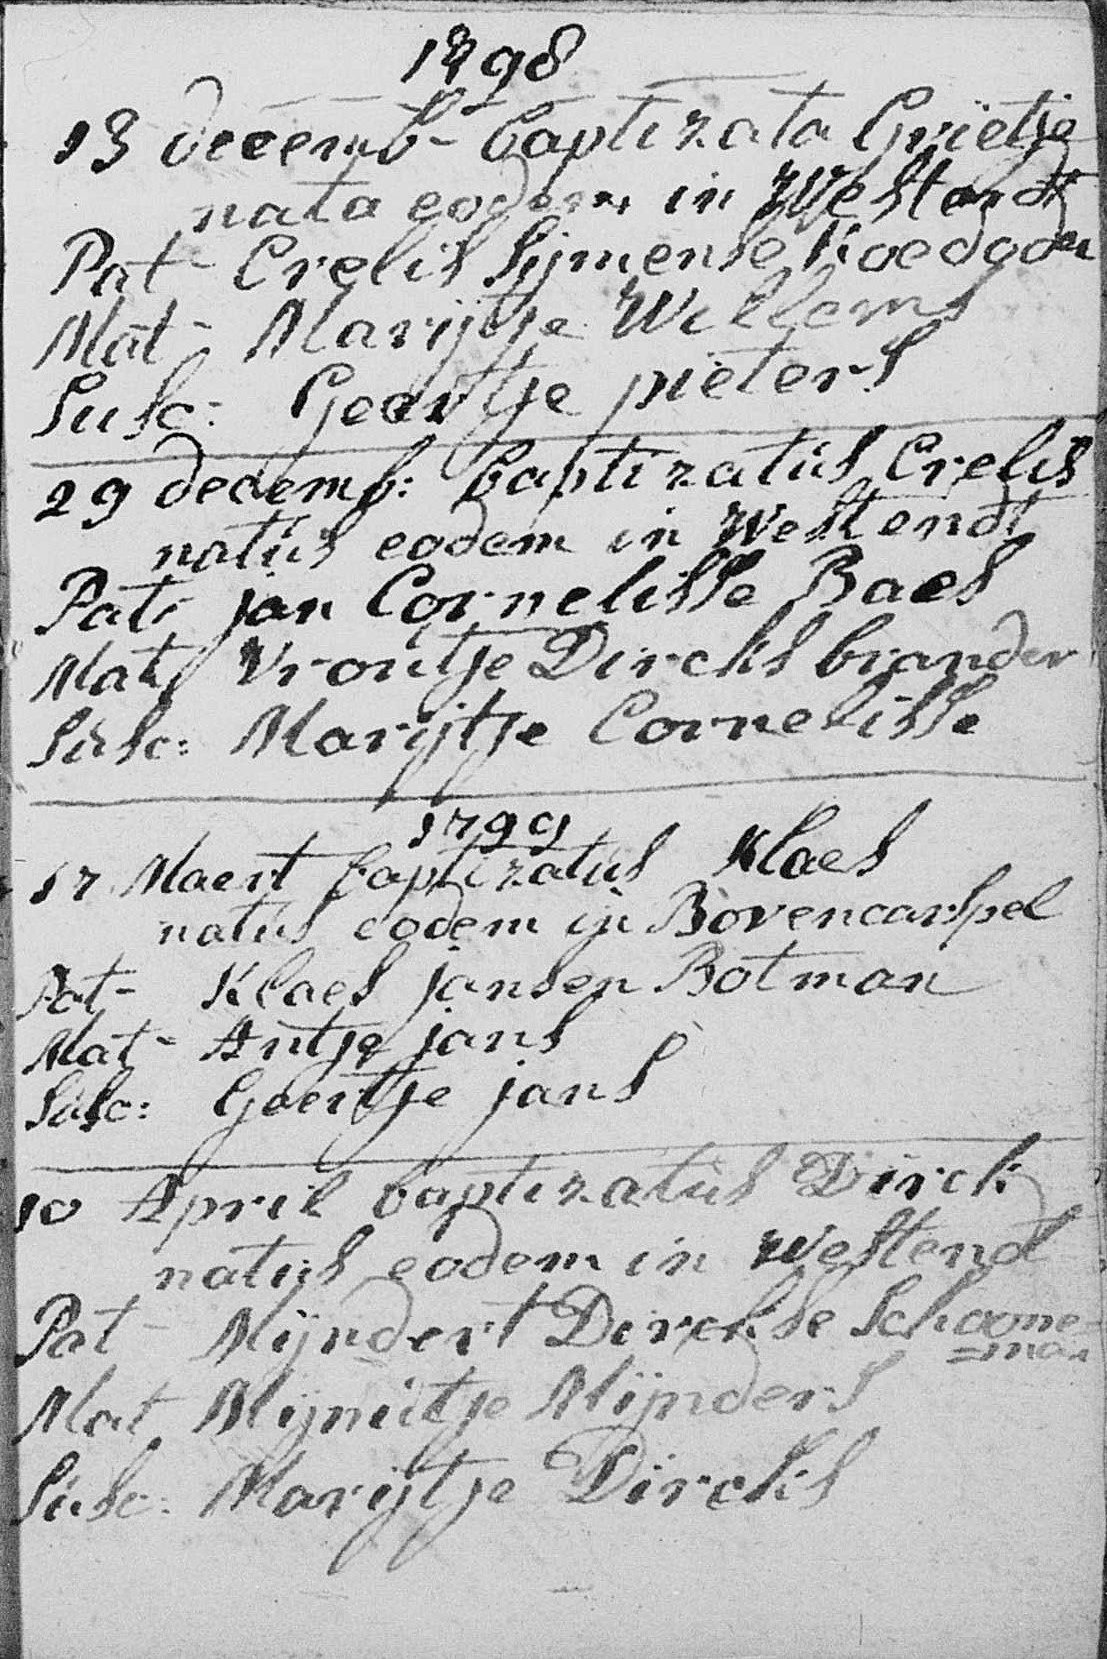 1798
13 decemb- baptizata Grietje
nata eodem in Westendt
Pat- Crelis Sijmense Koedooder
Mat- Marijtje Willems
Susc: Geertje pieters
29 decemb: baptizatus Crelis
natus eodem in Westendt
Pat- jan Cornelisse Baes
Mat, Vroutje Dircks brander
Susc: Marijtje Cornelisse
1799
17 Maert baptizatus Klaes
natus eodem in Bovencarspel
Pat- Klaes jansen Botman
Mat- Antje jans
Susc: Geertje jans
10 April baptizatus Dirck
natus eodem in Westend
Pat- Mijndert Dirckse Schoone=
=man
Mat Mijnutje Mijnders
Susc: Marijtje Dircks